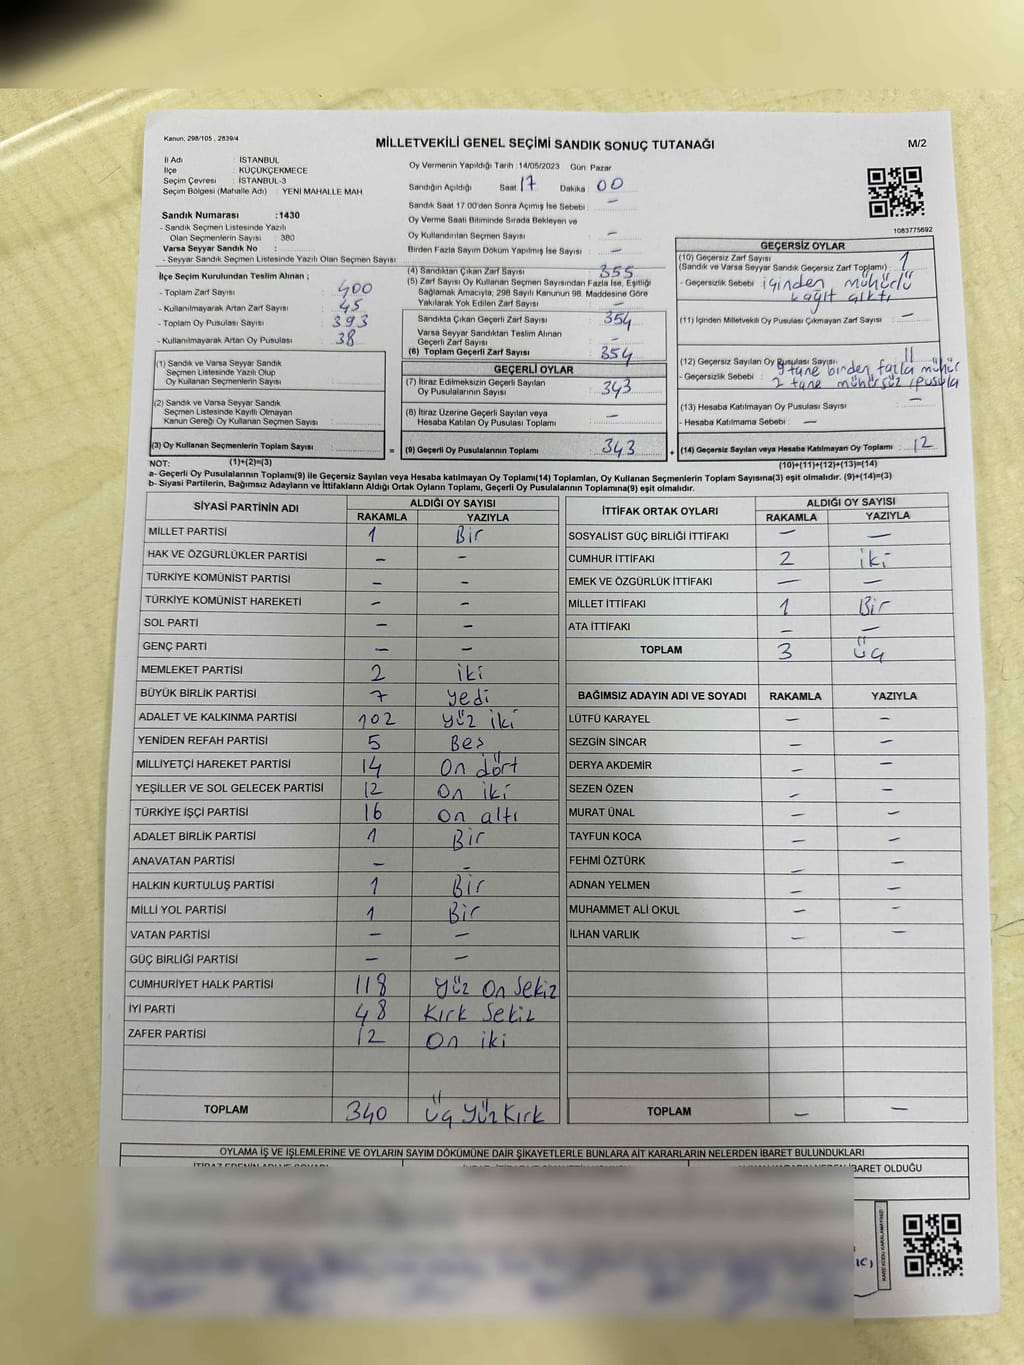 Kanun; 298/105 , 2839/4
MİLLETVEKİLİ GENEL SEÇİMİ SANDIK SONUÇ TUTANAĞI
M/2
İl Adı : İSTANBUL
İlçe : KÜÇÜKÇEKMECE
Seçim Çevresi : İSTANBUL-3
Seçim Bölgesi (Mahalle Adı) : YENİ MAHALLE MAH
Oy Vermenin Yapıldığı Tarih : 14/05/2023 Gün: Pazar
Sandığın Açıldığı Saat 17 Dakika 00
Sandık Saat 17.00'den Sonra Açımış İse Sebebi : –
Oy Verme Saati Bitiminde Sırada Bekleyen ve
Oy Kullandırılan Seçmen Sayısı –
Birden Fazla Sayım Döküm Yapılmış İse Sayısı : –
1083775692
Sandık Numarası : 1430
- Sandık Seçmen Listesinde Yazılı
Olan Seçmenlerin Sayısı : 380
Varsa Seyyar Sandık No :
- Seyyar Sandık Seçmen Listesinde Yazılı Olan Seçmen Sayısı :
İlçe Seçim Kurulundan Teslim Alınan ;
- Toplam Zarf Sayısı : 400
- Kullanılmayarak Artan Zarf Sayısı : 45
- Toplam Oy Pusulası Sayısı : 393
- Kullanılmayarak Artan Oy Pusulası : 38
(1) Sandık ve Varsa Seyyar Sandık
Seçmen Listesinde Yazılı Olup
Oy Kullanan Seçmenlerin Sayısı
(2) Sandık ve Varsa Seyyar Sandık
Seçmen Listesinde Kayıtlı Olmayan
Kanun Gereği Oy Kullanan Seçmen Sayısı :
(3) Oy Kullanan Seçmenlerin Toplam Sayısı =
(4) Sandıktan Çıkan Zarf Sayısı 355
(5) Zarf Sayısı Oy Kullanan Seçmen Sayısından Fazla İse, Eşitliği
Sağlamak Amacıyla; 298 Sayılı Kanunun 98. Maddesine Göre
Yakılarak Yok Edilen Zarf Sayısı : –
Sandıkta Çıkan Geçerli Zarf Sayısı 354
Varsa Seyyar Sandıktan Teslim Alınan
Geçerli Zarf Sayısı –
(6) Toplam Geçerli Zarf Sayısı 354
GEÇERLİ OYLAR
(7) İtiraz Edilmeksizin Geçerli Sayılan
Oy Pusulalarının Sayısı 343
(8) İtiraz Üzerine Geçerli Sayılan veya
Hesaba Katılan Oy Pusulası Toplamı –
(9) Geçerli Oy Pusulalarının Toplamı 343 +
GEÇERSİZ OYLAR
(10) Geçersiz Zarf Sayısı
(Sandık ve Varsa Seyyar Sandık Geçersiz Zarf Toplamı) : 1
- Geçersizlik Sebebi : içinden mühürlü
kağıt çıktı
(11) İçinden Milletvekili Oy Pusulası Çıkmayan Zarf Sayısı : –
(12) Geçersiz Sayılan Oy Pusulası Sayısı : 11
- Geçersizlik Sebebi : 9 tane birden fazla mühür
2 tane mühürsüz pusula
(13) Hesaba Katılmayan Oy Pusulası Sayısı –
- Hesaba Katılmama Sebebi : –
(14) Geçersiz Sayılan veya Hesaba Katılmayan Oy Toplamı 12
NOT: (1)+(2)=(3)
(10)+(11)+(12)+(13)=(14)
a- Geçerli Oy Pusulalarının Toplamı(9) ile Geçersiz Sayılan veya Hesaba katılmayan Oy Toplamı(14) Toplamları, Oy Kullanan Seçmenlerin Toplam Sayısına(3) eşit olmalıdır. (9)+(14)=(3)
b- Siyasi Partilerin, Bağımsız Adayların ve İttifakların Aldığı Ortak Oyların Toplamı, Geçerli Oy Pusulalarının Toplamına(9) eşit olmalıdır.
SİYASİ PARTİNİN ADI ALDIĞI OY SAYISI
RAKAMLA YAZIYLA
MİLLET PARTİSİ 1 Bir
HAK VE ÖZGÜRLÜKLER PARTİSİ – –
TÜRKİYE KOMÜNİST PARTİSİ – –
TÜRKİYE KOMÜNİST HAREKETİ – –
SOL PARTİ – –
GENÇ PARTİ – –
MEMLEKET PARTİSİ 2 iki
BÜYÜK BİRLİK PARTİSİ 7 yedi
ADALET VE KALKINMA PARTİSİ 102 yüz iki
YENİDEN REFAH PARTİSİ 5 Beş
MİLLİYETÇİ HAREKET PARTİSİ 14 On dört
YEŞİLLER VE SOL GELECEK PARTİSİ 12 On iki
TÜRKİYE İŞÇİ PARTİSİ 16 On altı
ADALET BİRLİK PARTİSİ 1 Bir
ANAVATAN PARTİSİ – –
HALKIN KURTULUŞ PARTİSİ 1 Bir
MİLLİ YOL PARTİSİ 1 Bir
VATAN PARTİSİ – –
GÜÇ BİRLİĞİ PARTİSİ – –
CUMHURİYET HALK PARTİSİ 118 yüz On Sekiz
İYİ PARTİ 48 Kırk Sekiz
ZAFER PARTİSİ 12 On iki
TOPLAM 340 üç yüz Kırk
İTTİFAK ORTAK OYLARI ALDIĞI OY SAYISI
RAKAMLA YAZIYLA
SOSYALİST GÜÇ BİRLİĞİ İTTİFAKI – –
CUMHUR İTTİFAKI 2 iki
EMEK VE ÖZGÜRLÜK İTTİFAKI – –
MİLLET İTTİFAKI 1 Bir
ATA İTTİFAKI – –
TOPLAM 3 üç
BAĞIMSIZ ADAYIN ADI VE SOYADI RAKAMLA YAZIYLA
LÜTFÜ KARAYEL – –
SEZGİN SİNCAR – –
DERYA AKDEMİR – –
SEZEN ÖZEN – –
MURAT ÜNAL – –
TAYFUN KOCA – –
FEHMİ ÖZTÜRK – –
ADNAN YELMEN – –
MUHAMMET ALİ OKUL – –
İLHAN VARLIK – –
TOPLAM – –
OYLAMA İŞ VE İŞLEMLERİNE VE OYLARIN SAYIM DÖKÜMÜNE DAİR ŞİKAYETLERLE BUNLARA AİT KARARLARIN NELERDEN İBARET BULUNDUKLARI
İBARET OLDUĞU
KARE KODU KARALAMAYINIZ!